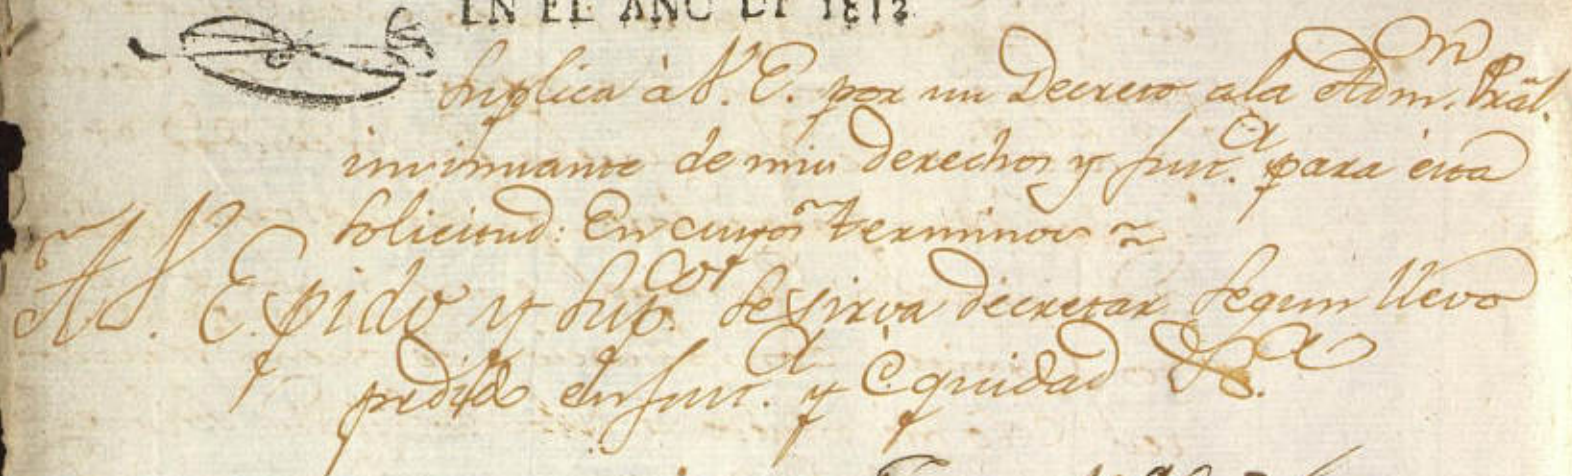 EN EL AÑO DE 1812
Suplica à V. E. por un Decreto ala Adm.on Pral.
insinuante de mis derechos y Just.a para esta
Solicitud: En cuyos terminos ~
A V. E. pido y Sup.co se sirva decretar segun llevo
pedido en Just.a y Equidad &.a